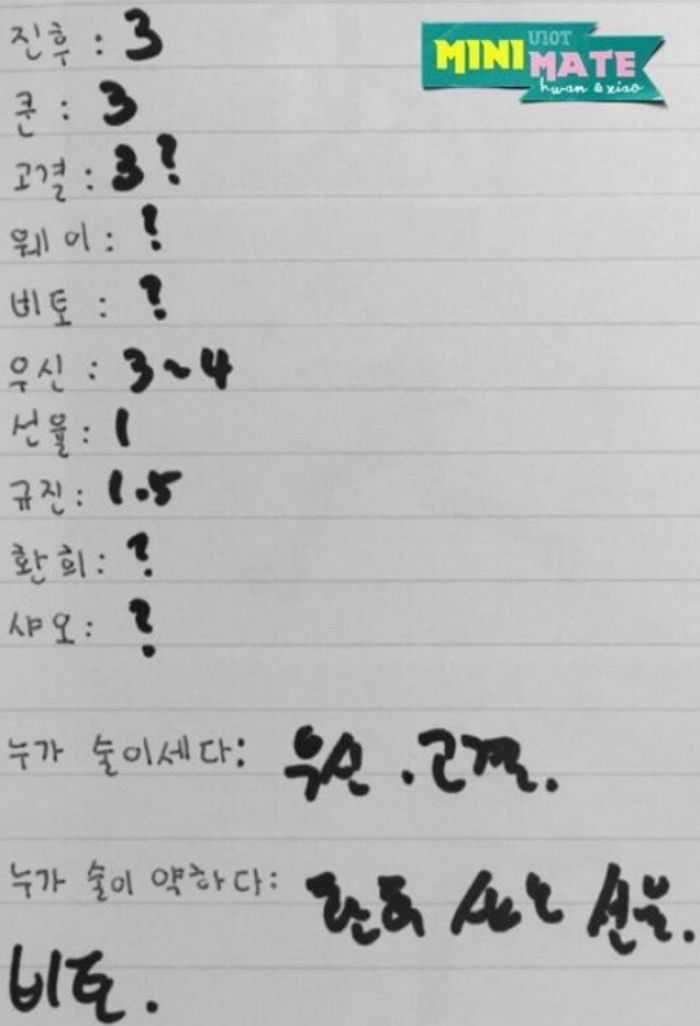 진후 : 3
U10T
MINI MATE
hwan & xiao
쿤 : 3
고결 : 3?
웨이 : ?
비토 : ?
우신 : 3~4
선율 : 1
규진 : 1.5
환희 : ?
샤오 : ?
누가 술이세다 : 우신 . 고결 .
누가 술이 약하다 : 환희 샤오 선율 .
비토 .